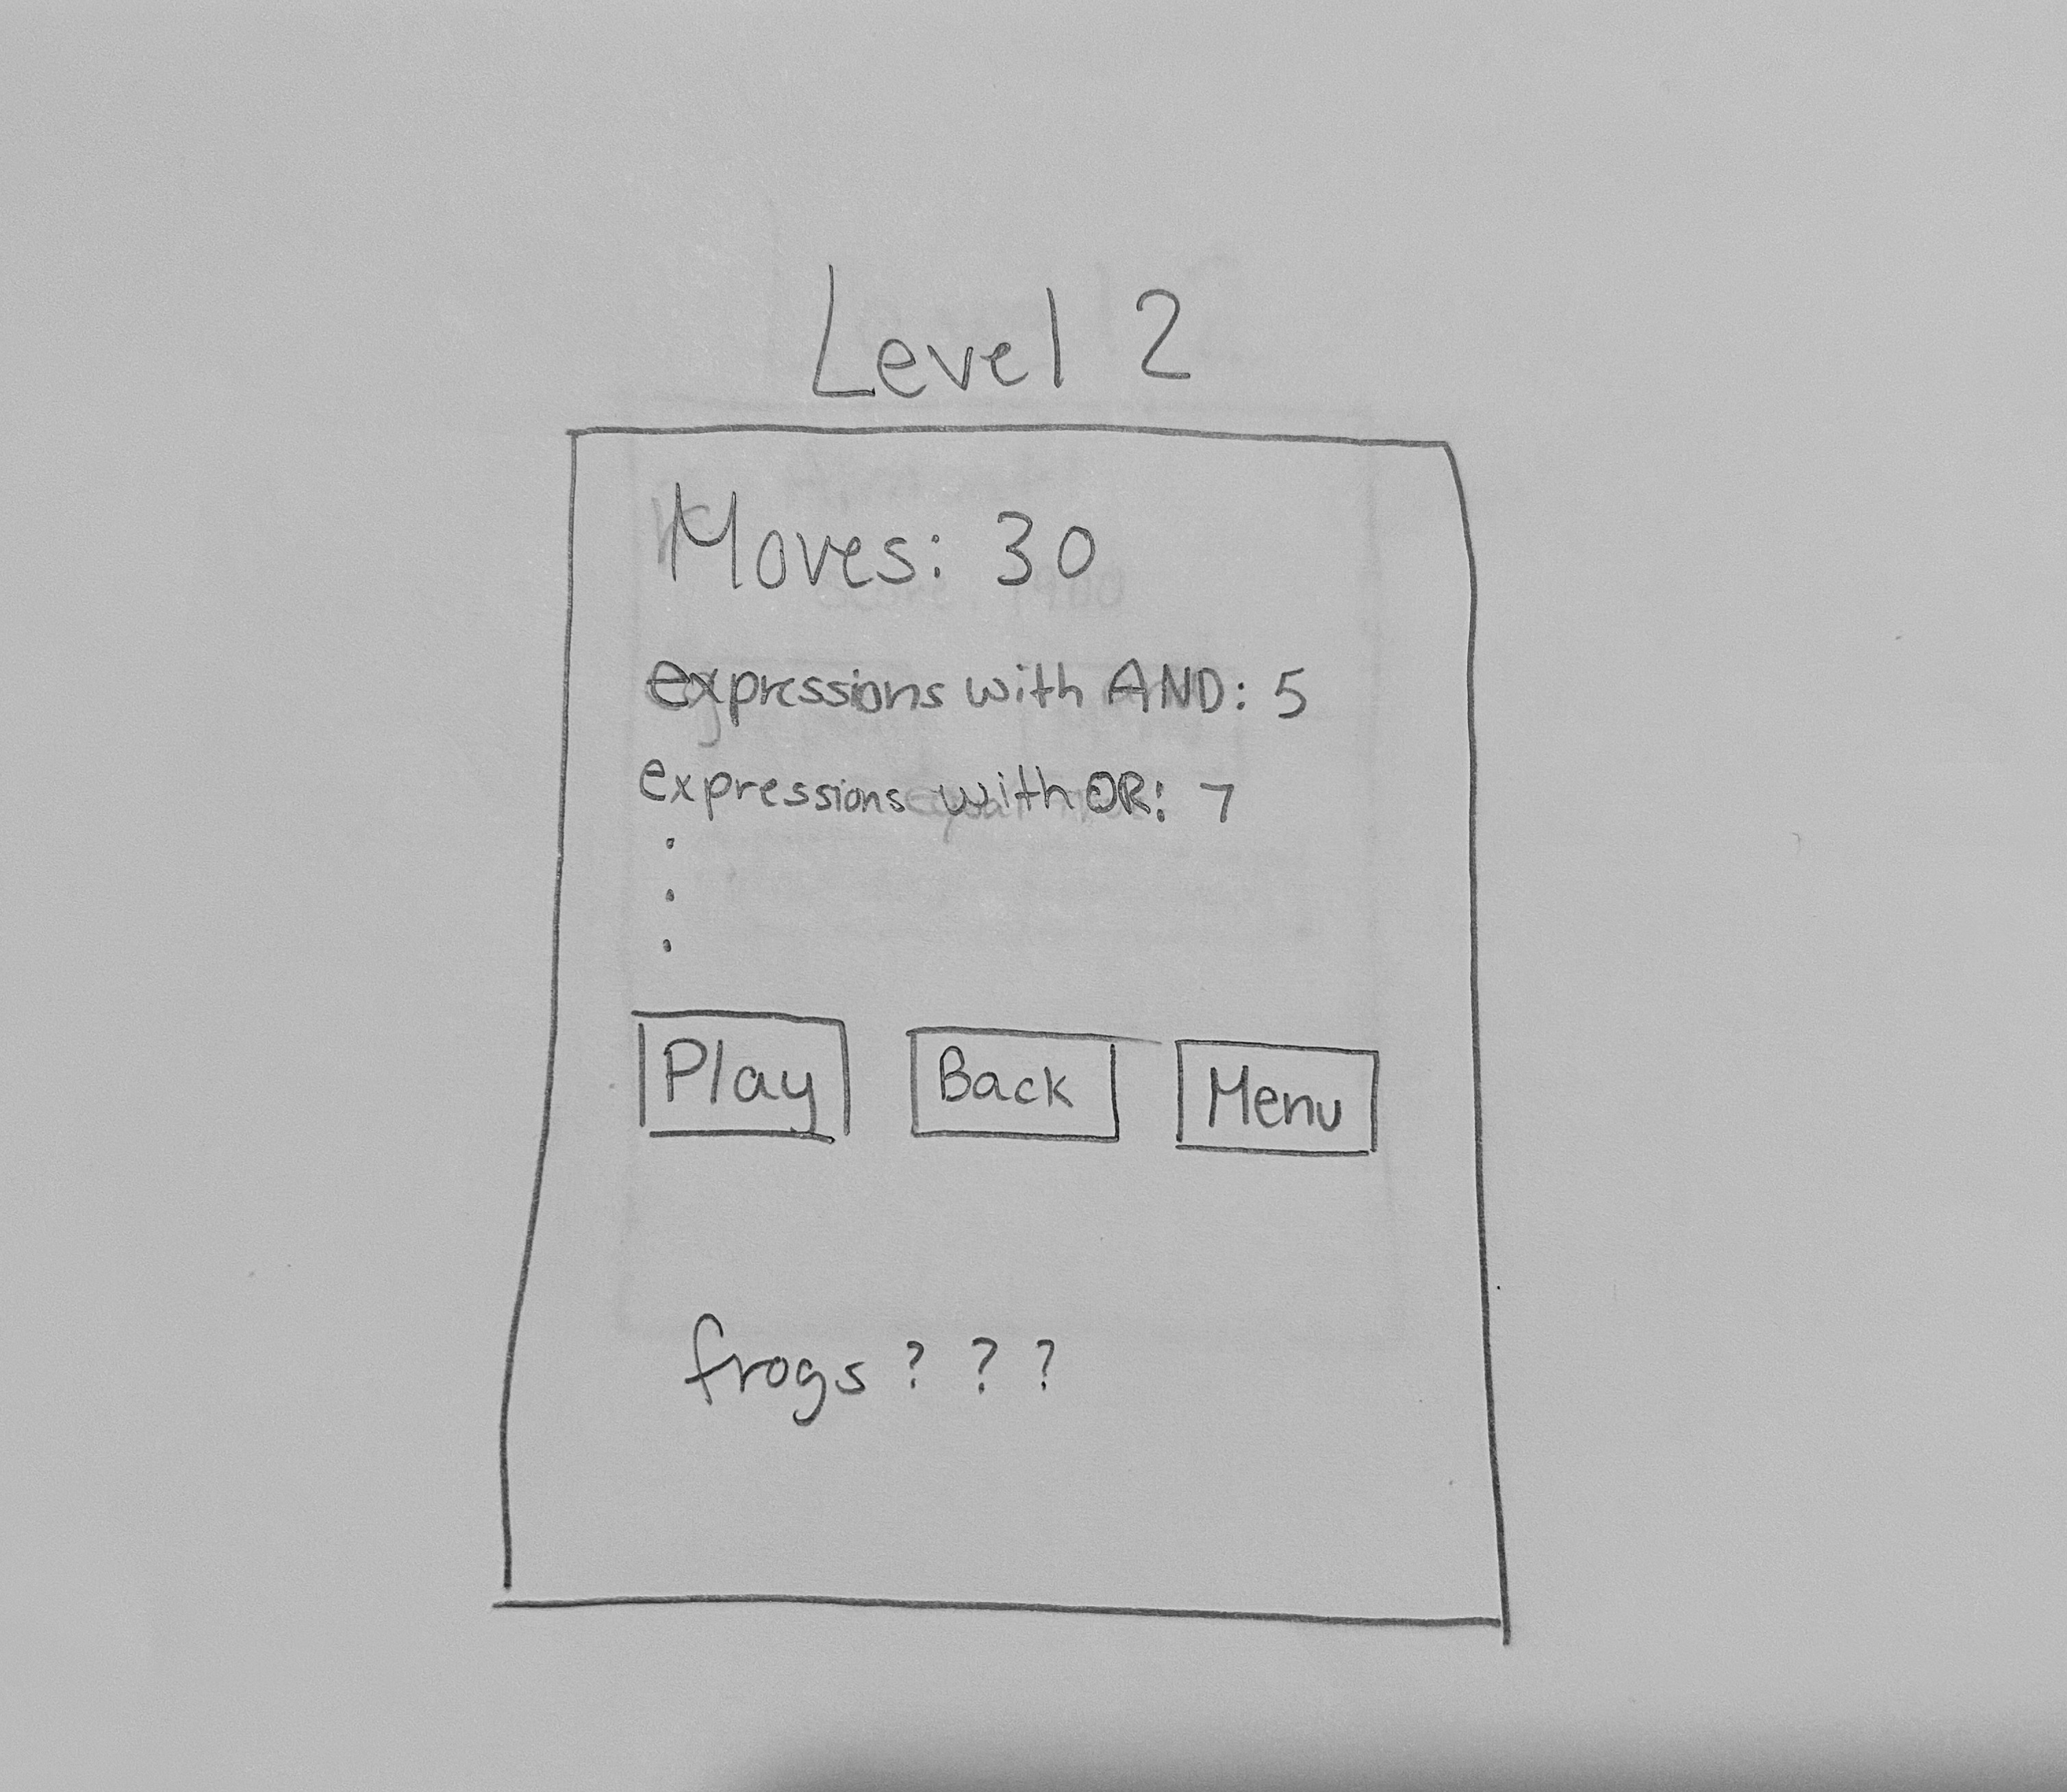 Level 2
Moves: 30
expressions with AND: 5
expressions with OR: 7
.
.
.
Play Back Menu
frogs ? ? ?